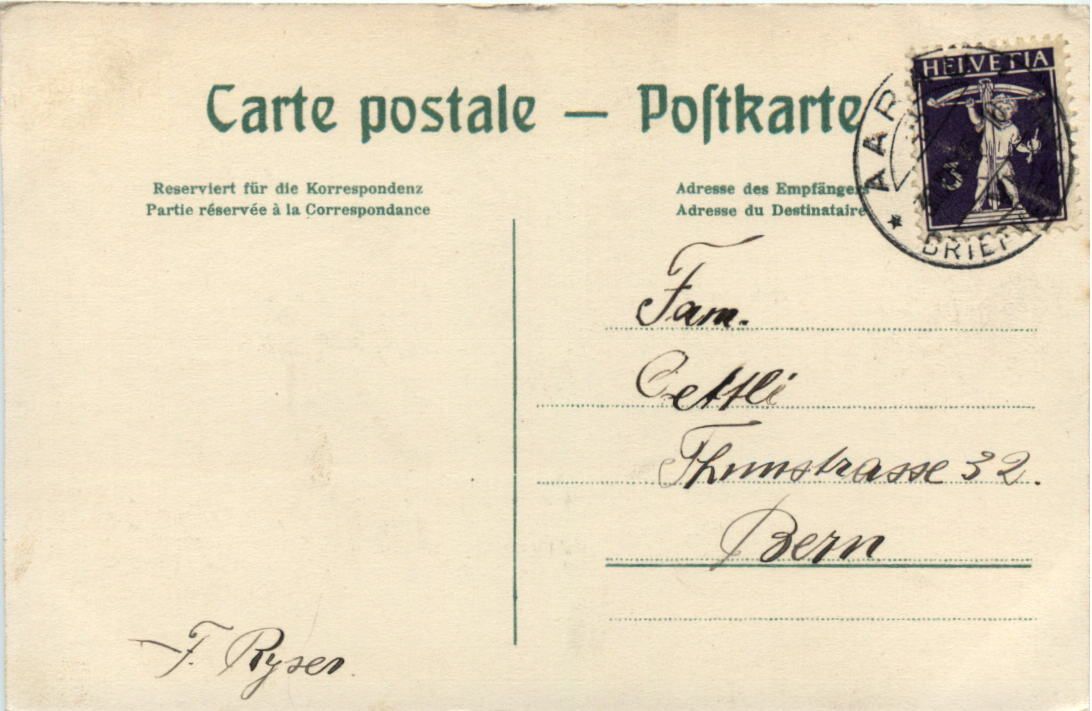 Carte postale — Poſtkarte
HELVETIA
Reserviert für die Korrespondenz
Partie réservée à la Correspondance
Adresse des Empfängers
Adresse du Destinataire
BRIEF
Fam.
Oettli
Thunstrasse 32.
Bern
F. Ryser